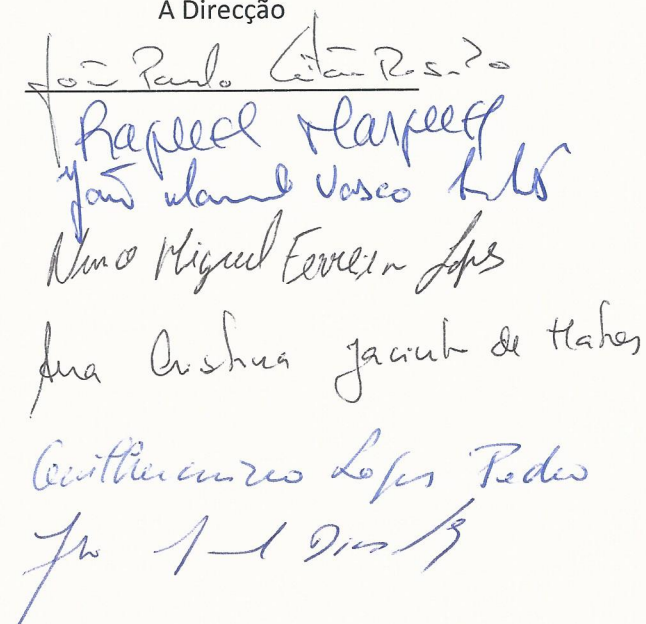 A Direcção
João Paulo Leitão Rosado
Raquel
João Manuel Vasco
Nuno Miguel Ferreira Lopes
Ana Cristina Jacinto de Matos
Guilhermino Lopes Pedro
Dias